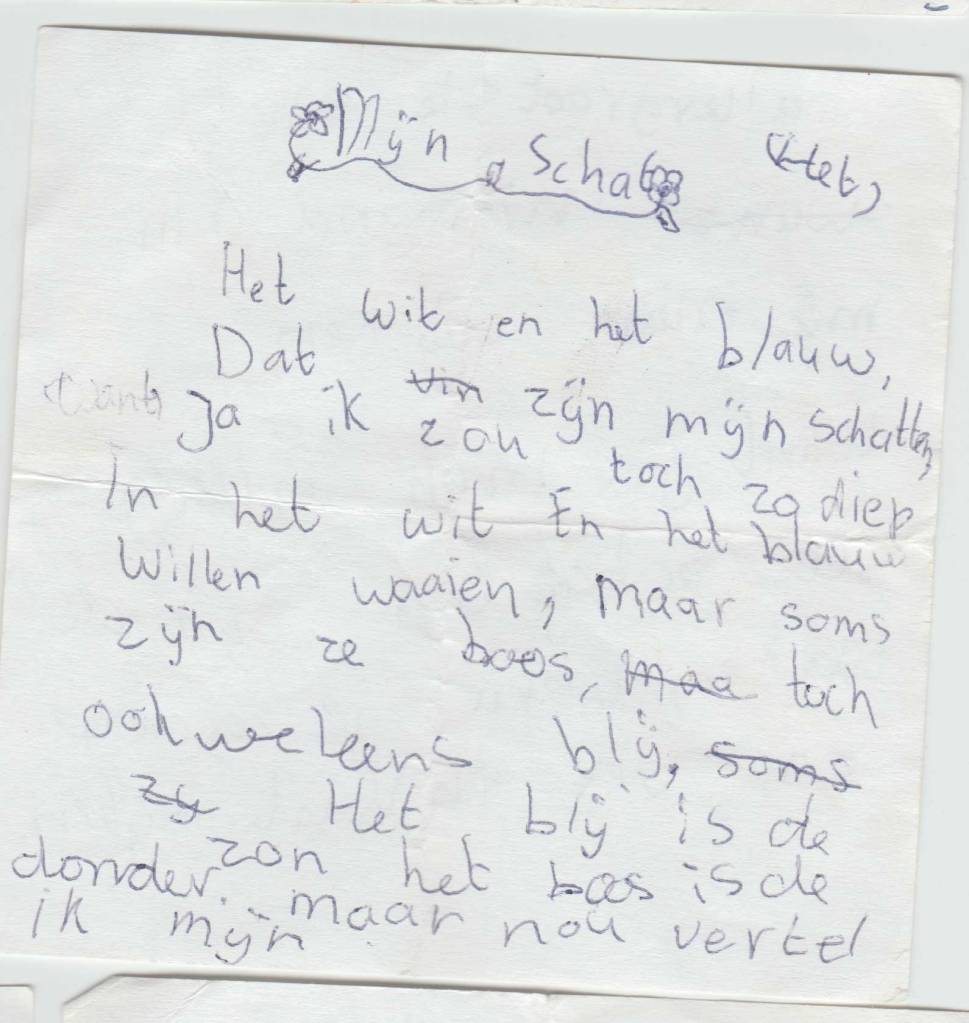 Mijn Schat
Het wit en het blauw,
Dat zijn mijn schatten,
Want Ja ik zou toch zo diep
In het wit En het blauw
Willen waaien, maar soms
zijn ze boos, maa toch
ook weleens blij, soms
zij Het blij is de
zon het boos is de
donder. maar nou vertel
ik mijn